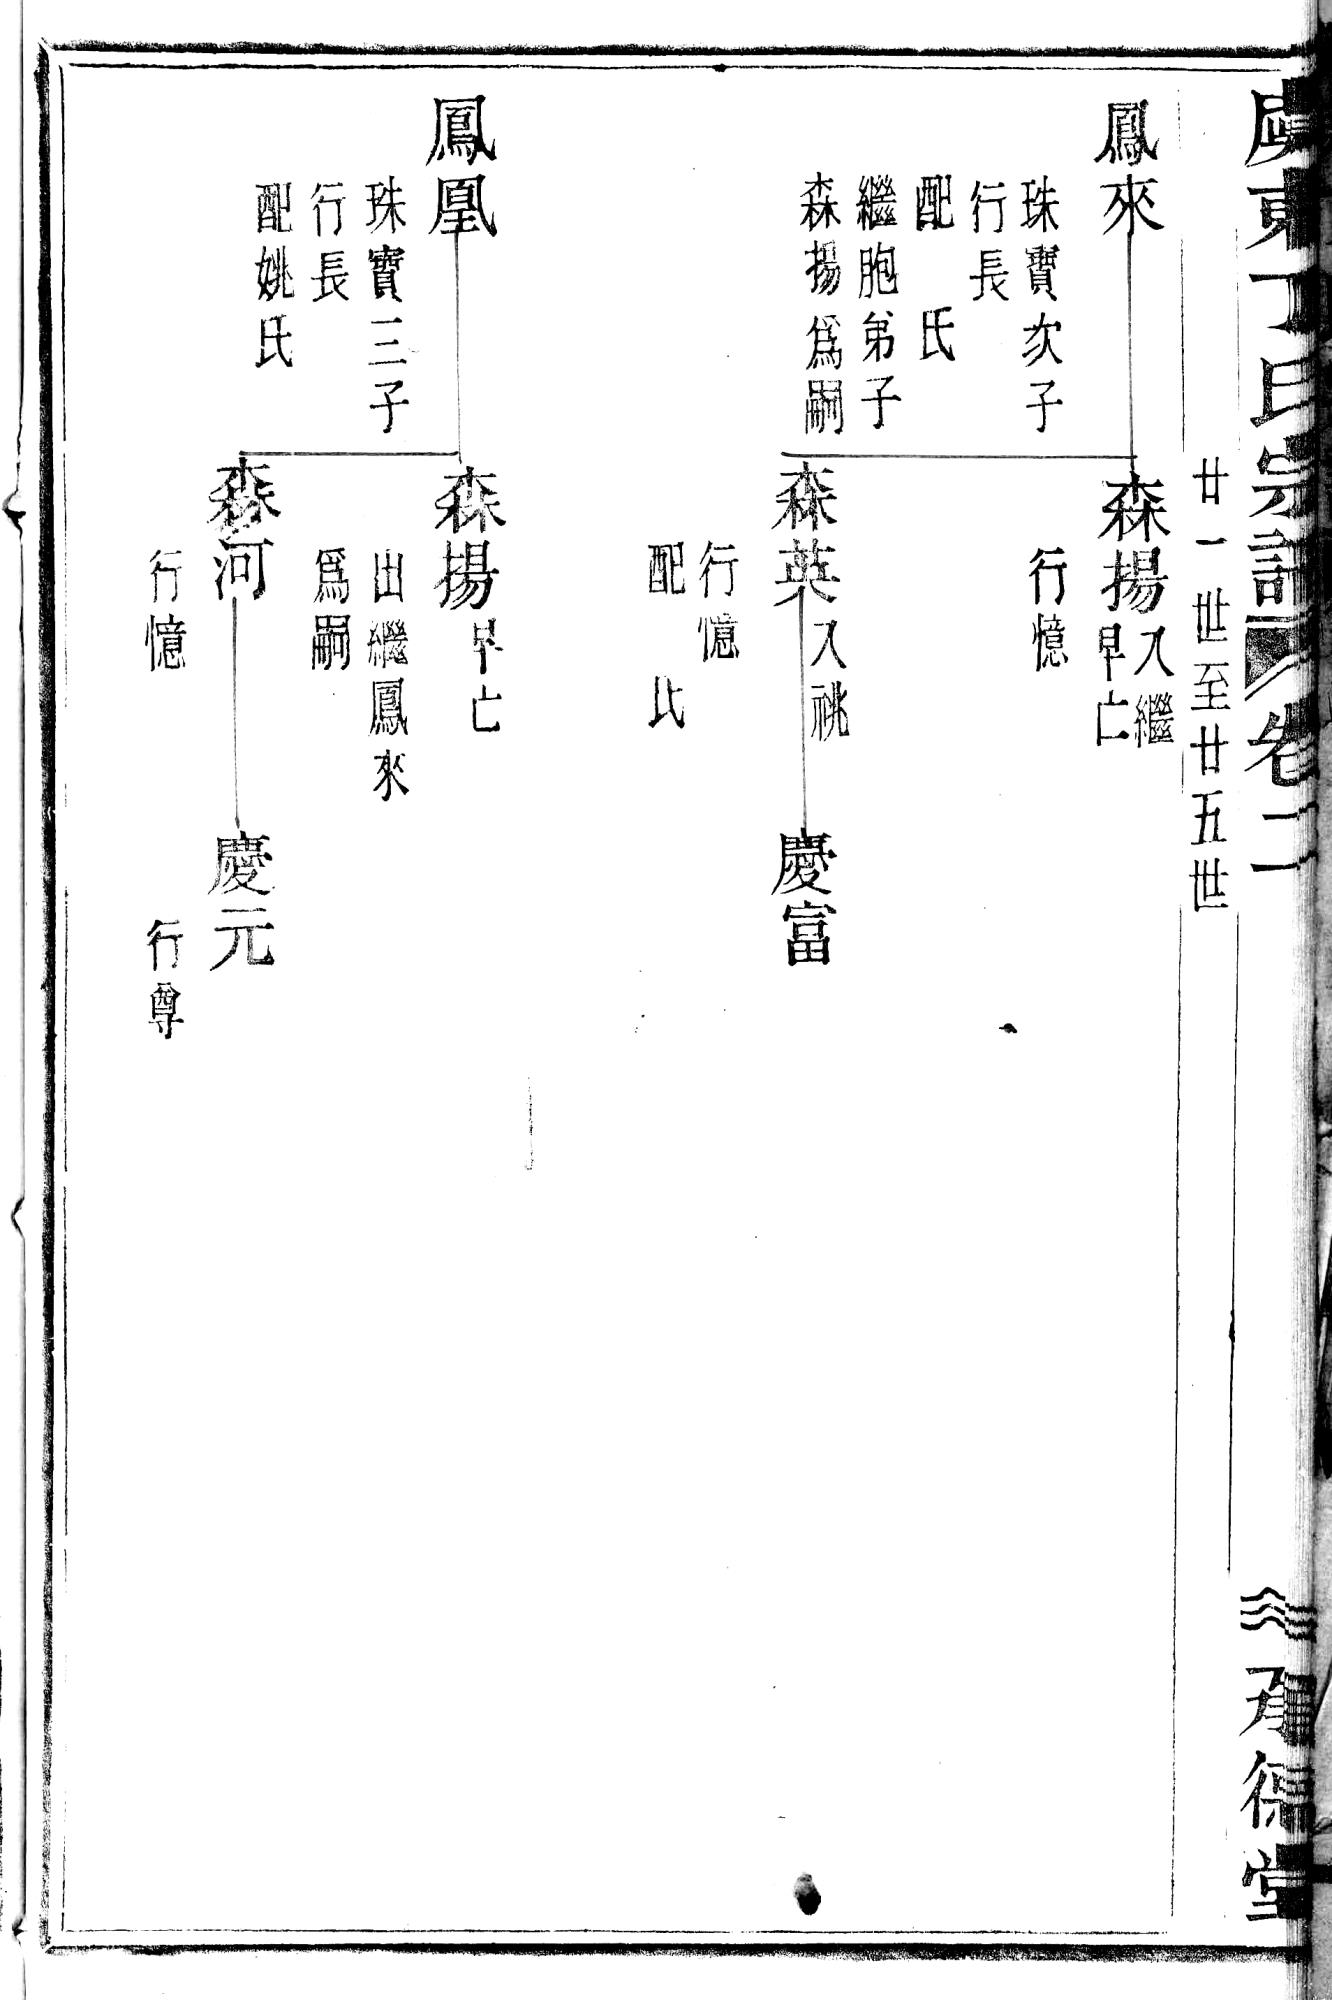 東丁氏宗譜 卷二
承德堂
廿一世至廿五世
鳳來
珠寶次子
行長
配 氏
繼胞弟子
森揚爲嗣
森揚 入繼
早亡
行憶
森英 入祧
行憶
配 氏
慶富
鳳凰
珠寶三子
行長
配姚氏
森揚 早亡
出繼鳳來
爲嗣
森河
行憶
慶元
行尊